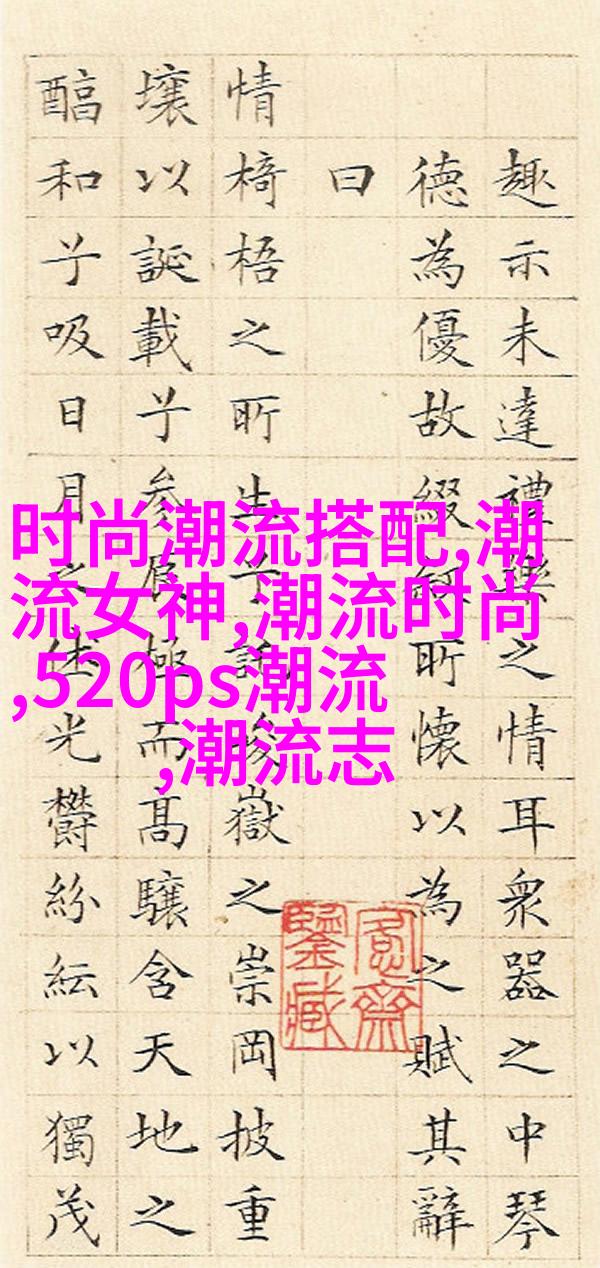 趣示未達禮樂之情耳衆器之中琴
德為優故綴所懷以為之賦其辭
曰
情椅梧之所生兮託峻嶽之崇岡披重
壤以誕載兮參辰極而髙驤含天地之
醕和兮吸日月之休光鬱紛紜以獨茂
时尚潮流搭配,潮
流女神,潮流时尚
,520ps潮流
,潮流志
齋
鑒藏